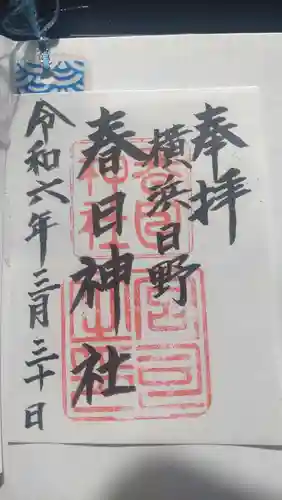 奉拝
横浜日野
春日神社
令和六年三月三十日